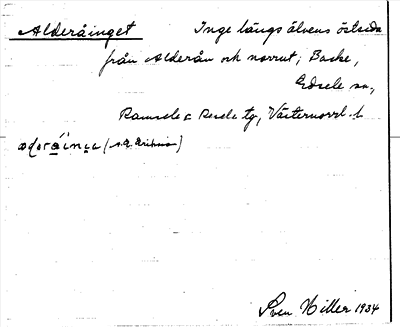 Alderåinget Inge längs älvens östsida
från Alderån och norrut; Backe,
Edsele sn,
Ramsele & Resele tg, Västernorrl. l.
Sven Hiller 1934